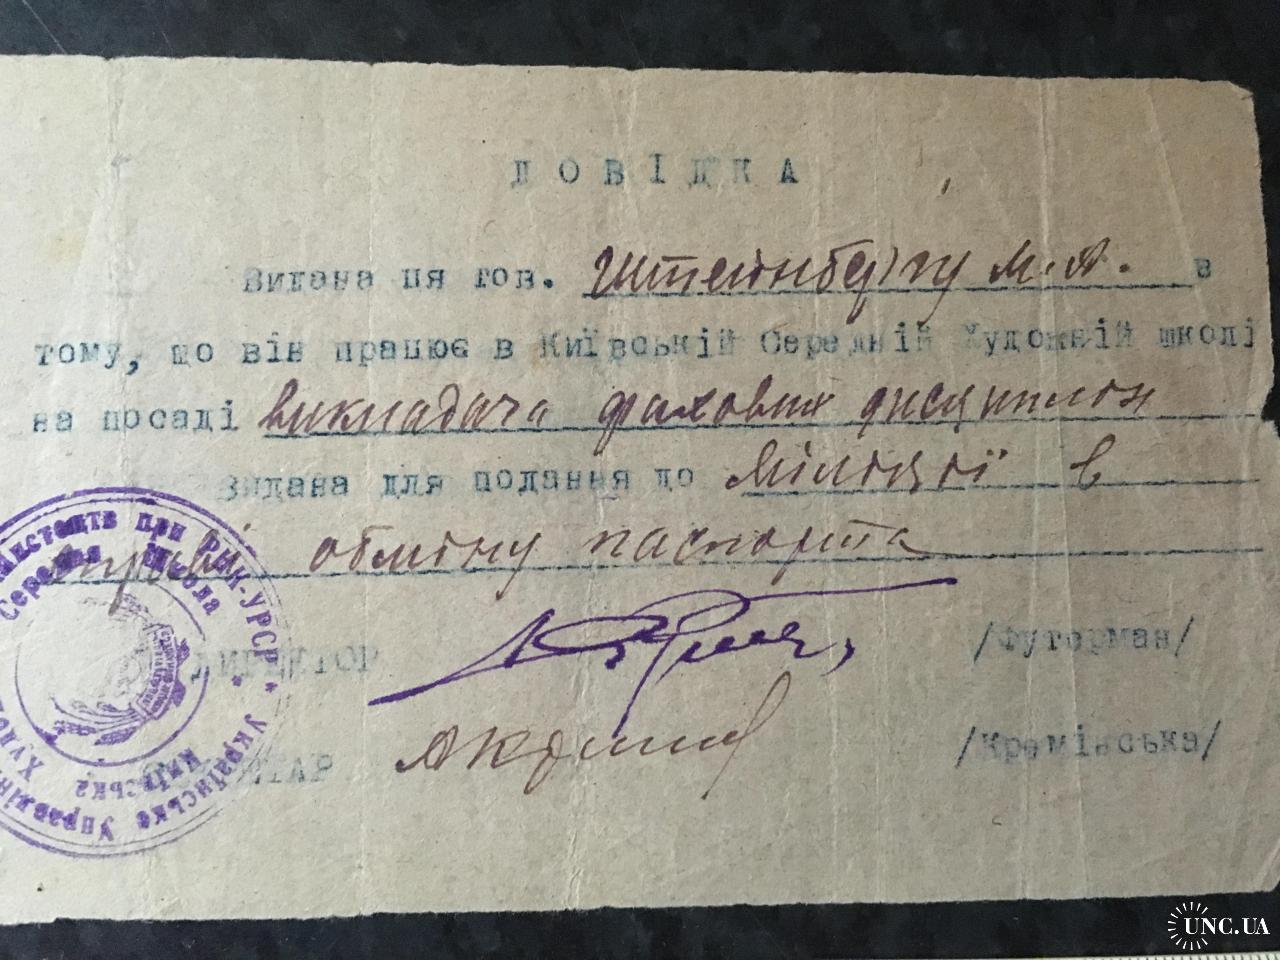 ДОВІДКА
Видана ця тов. Штейнбергу М.А. в
тому, що він працює в Київській Середній Художній школі
на посаді викладача фахових дисциплін
Видана для подання до міліції в
справі обміну паспорта
ДИРЕКТОР /Футерман/
/Кремінська/
Мистецтв при РНК-УРСР * Українське Управлін
Середня Школа * Київська Худо
UNC.UA